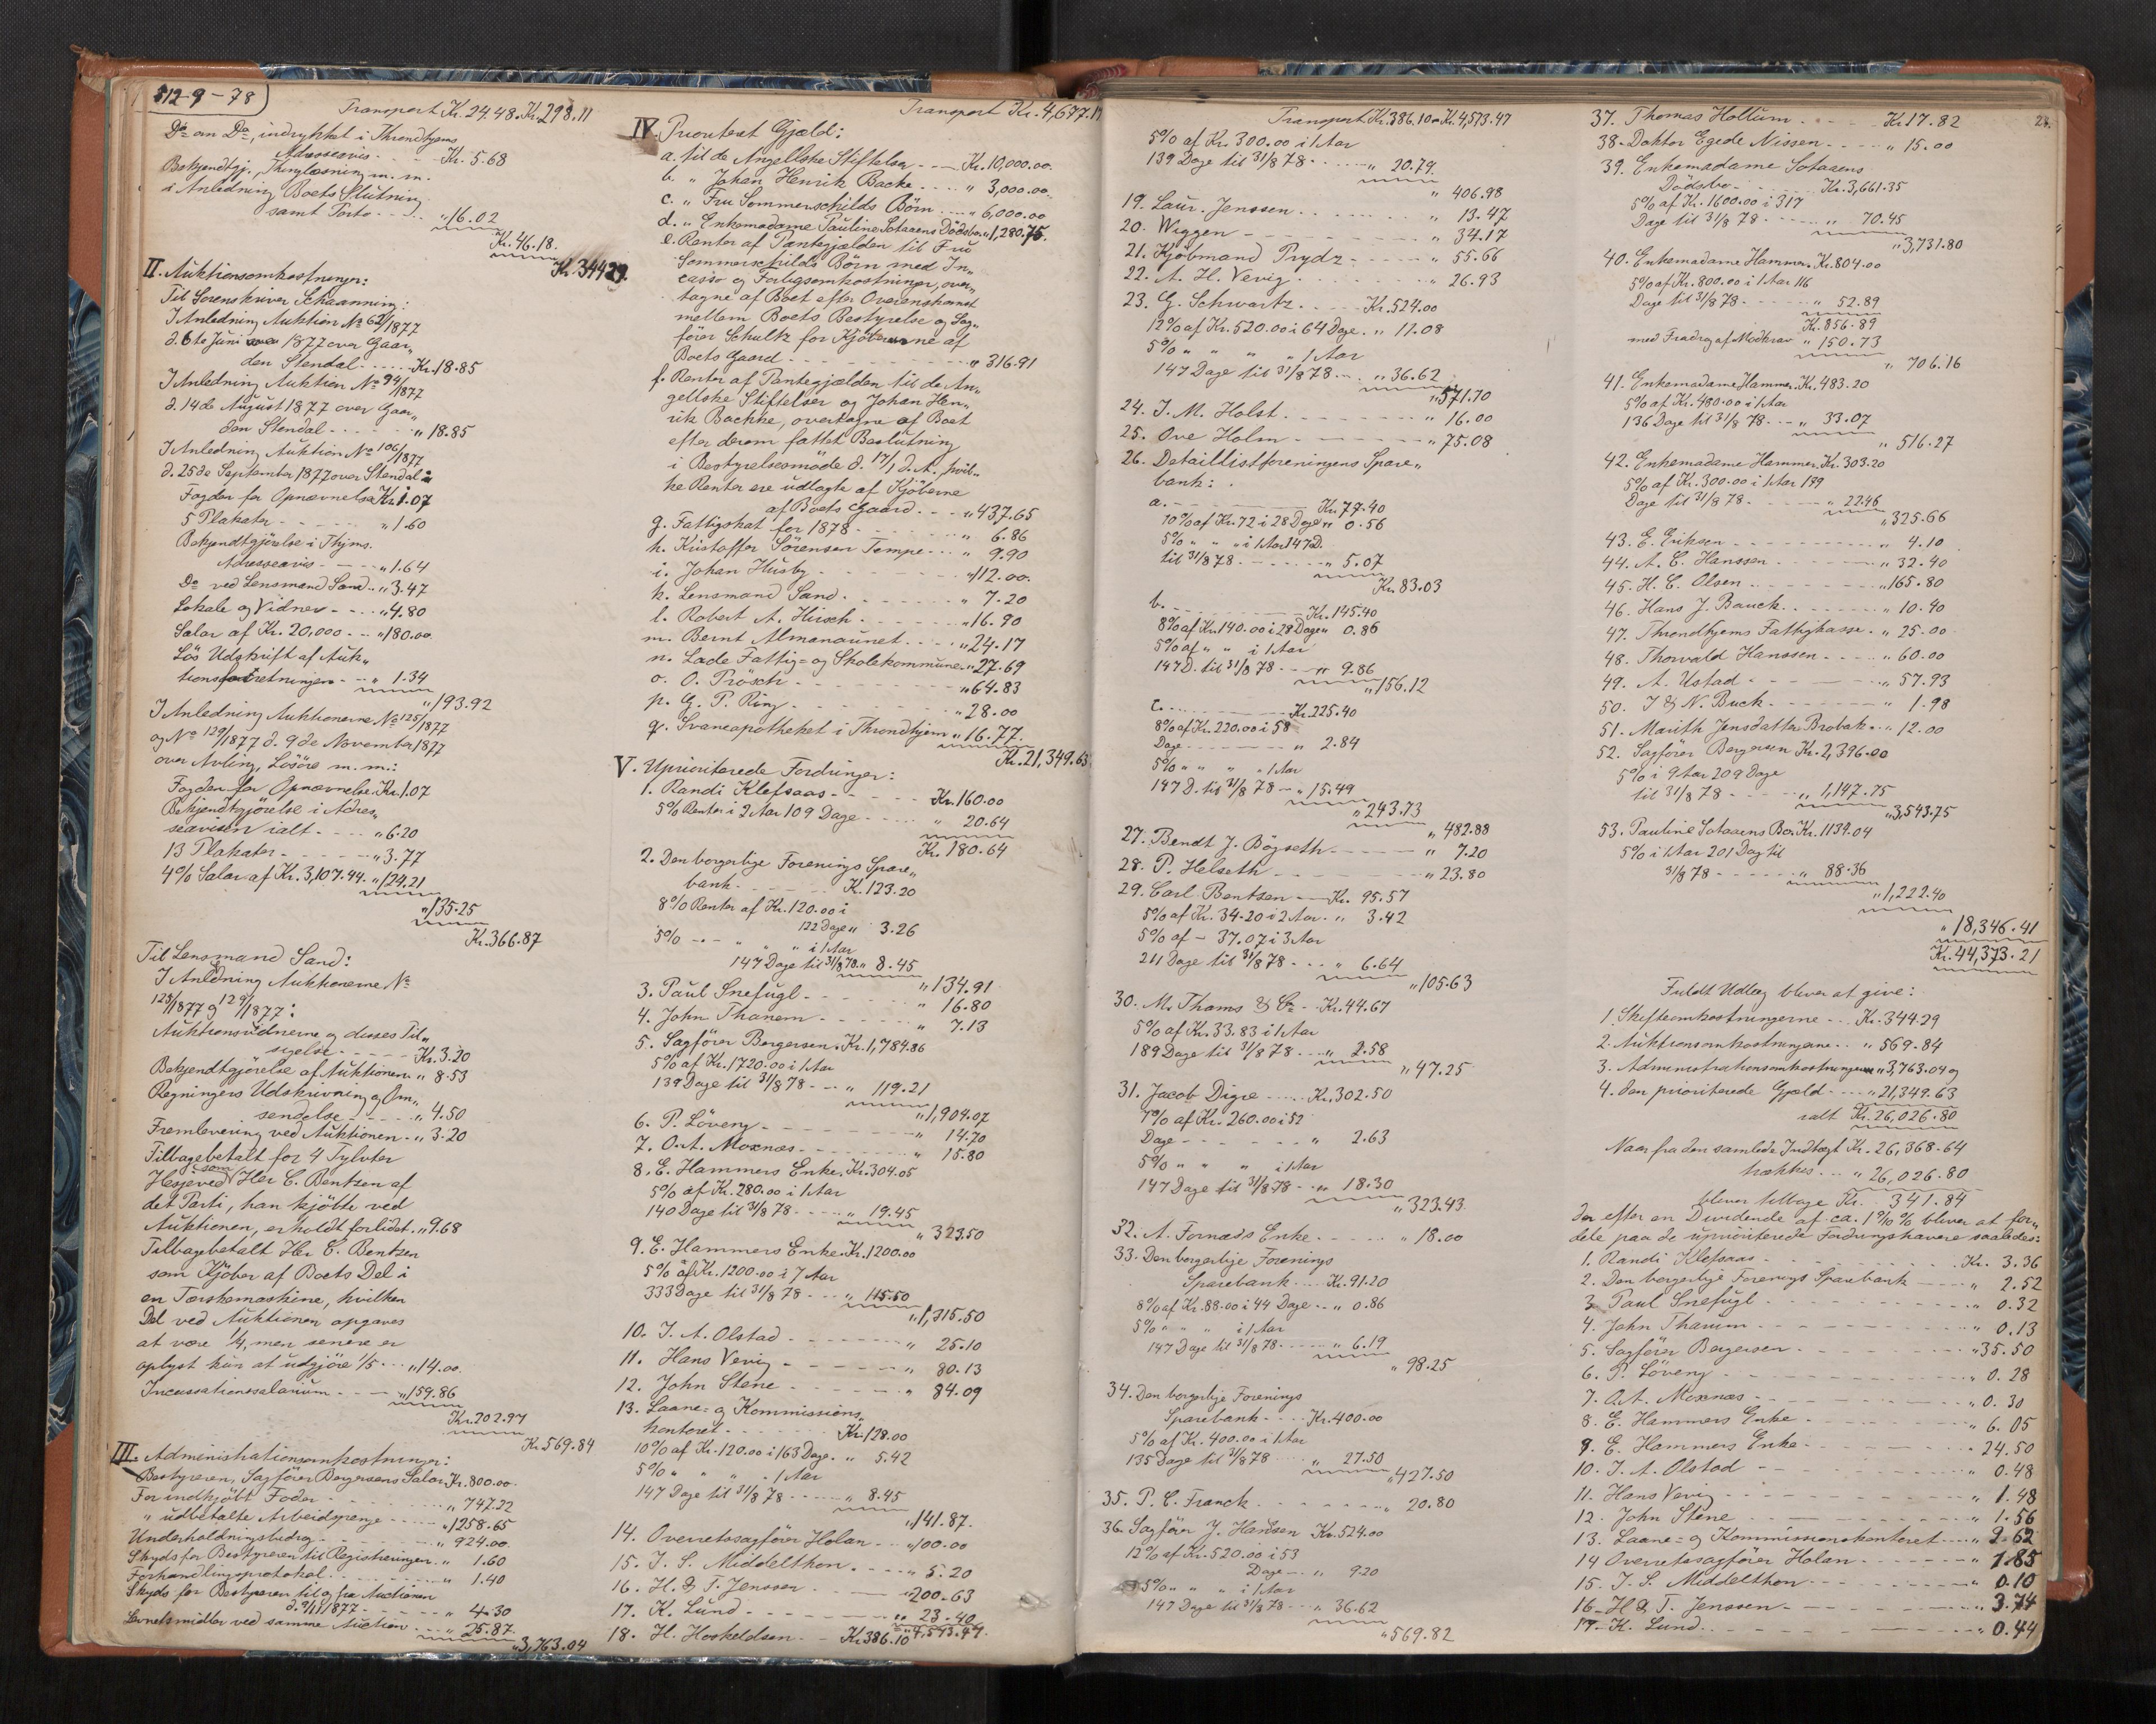 512-9-78
Transport Kr. 24.48. Kr. 298.11
Do om Do, indrykket i Throndhjems
Adresseavis - - - Kr. 5.68
Bekjendtgj., Thinglæsning m. m.
i Anledning Boets Slutning
samt Porto - - - " 16.02
Kr. 46.18.
Kr. 344.29.
II. Auktionsomkostninger:
Til Sorenskriver Schaanning:
I Anledning Auktion No 62/1877
d. 6te Juni 1877 over Gaar-
den Stendal - - - Kr. 18.85
I Anledning Auktion No 94/1877
d. 14de August 1877 over Gaar-
den Stendal - - - " 18.85
I Anledning Auktion No 106/1877
d. 25de September 1877 over Stendal
Fogden for Opnævnelse Kr. 1.07
5 Plakater - - - " 1.60
Bekjendtgjørelse i Thjms.
Adresseavis - - - " 1.64
Do ved Lensmand Sand - " 3.47
Lokale og Vidner - - - " 4.80
Salær af Kr. 20,000 - - " 180.00
Løs Udskrift af Auk-
tionsforretningen - - " 1.34
" 193.92
I Anledning Auktionerne No 125/1877
og No 129/1877 d. 9de November 1877
over Avling, Løsøre m. m.:
Fogden for Opnævnelse Kr. 1.07
Bekjendtgjørelse i Adres-
seavisen ialt - - - " 6.20
13 Plakater - - - " 3.77
4% Salær af Kr. 3,107.44. " 124.21
" 135.25
Kr. 366.87
Til Lensmand Sand:
I Anledning Auktionerne No
125/1877 og 129/1877:
Auktionsvidnerne og disses Til-
sigelse - - - Kr. 3.20
Bekjendtgjørelse af Auktionen " 8.53
Regningers Udskrivning og Om-
sendelse - - - " 4.50
Fremlevering ved Auktionen - " 3.20
Tilbagebetalt for 4 Tylvter
Hesjeved som Her C. Bentzen af
det Parti, han kjøbte ved
Auktionen, erholdt forlidet - " 9.68
Tilbagebetalt Her C. Bentzen
som Kjøber af Boets Del i
en Tærskemaskine, hvilken
Del ved Auktionen opgaves
at være 1/4, men senere er
oplyst kun at udgjøre 1/5 - - " 14.00
Incassationssalarium - - - " 159.86
Kr. 202.97
Kr. 569.84
III. Administrationsomkostninger:
Bestyreren, Sagfører Bergersens Salær Kr. 800.00
For indkjøbt Foder - - - " 747.22
" udbetalte Arbeidspenge - - - " 1258.65
Underholdningsbidrag - - - " 924.00
Skyds for Bestyreren til Registreringen - " 1.60
Forhandlingsprotokol - - - " 1.40
Skyds for Bestyreren til og fra Auctionen
d. 9/11 1877 - - - " 4.30
Levnetsmidler ved samme Auction - " 25.87
" 3,763.04
Transport Kr. 4,677.17
IV. Prioritert Gjæld:
a. til de Angellske Stiftelser - - - Kr. 10,000.00.
b. " Johan Henrik Backe - - - " 3,000.00
c. " Fru Sommerschilds Børn - - - " 6,000.00
d. " Enkemadame Pauline Sotaaens Dødsbo " 1,280.75.
e. Renter af Pantegjælden til Fru
Sommerschilds Børn med In-
casso og Forligsomkostninger, over-
tagne af Boet efter Overenskomst
mellem Boets Bestyrelse og Sag-
fører Schultz for Kjøberne af
Boets Gaard - - - " 316.91
f. Renter af Pantegjælden til de An-
gellske Stiftelser og Johan Hen-
rik Backke, overtagne af Boet
efter derom fattet Beslutning
i Bestyrelsesmøde d. 17/1 d. A. hvil-
ke Renter ere udlagte af Kjøberne
af Boets Gaard - - - " 437.65
g. Fattigskat for 1878 - - - " 6.86
h. Kristoffer Sørensen Tempe - - - " 9.90
i. Johan Husby - - - " 112.00.
k. Lensmand Sand - - - " 7.20
l. Robert A. Hirsch - - - " 16.90
m. Bernt Almanaunet - - - " 24.17
n. Lade Fattig- og Skolekommune - " 27.69
o. O. Prösch - - - " 64.83
p. G. P. Ring - - - " 28.00
q. Svaneapotheket i Throndhjem " 16.77.
Kr. 21,349.63
V. Uprioriterede Fordringer:
1. Randi Klefsaas - - - Kr. 160.00
5% Renter i 2 Aar 109 Dage - - - " 20.64
Kr. 180.64
2. Den borgerlige Forenings Spare-
bank - - - K. 123.20
8% Renter af Kr. 120.00 i
122 Dage " 3.26
5% - " - " " " i 1 Aar
147 Dage til 31/8 78. " 8.45
" 134.91
3. Paul Snefugl - - - " 16.80
4. John Thanem - - - " 7.13
5. Sagfører Bergersen Kr. 1,784.86
5% af Kr. 1720.00 i 1 Aar
139 Dage til 31/8 78 - - " 119.21
" 1,904.07
6. P. Løveng - - - " 14.70
7. O. A. Moxnæs - - - " 15.80
8. E. Hammers Enke Kr. 304.05
5% af Kr. 280.00 i 1 Aar
140 Dage til 31/8 78 - - - " 19.45
" 323.50
9. E. Hammers Enke Kr. 1200.00
5% af Kr. 1200.00 i 7 Aar
333 Dage til 31/8 78 - - - " 115.50
" 1,315.50
10. J. A. Olstad - - - " 25.10
11. Hans Vevig - - - " 80.13
12. John Stene - - - " 84.09
13. Laane- og Kommissions-
kontoret - - - Kr. 128.00
10% af Kr. 120.00 i 163 Dage - " 5.42
5% " " " " 1 Aar
147 Dage til 31/8 78 - - - " 8.45
" 141.87.
14. Overretssagfører Holan - - - " 100.00
15. J. S. Middelthon - - - " 5.20
16. H. & T. Jenssen " 200.63
17. K. Lund - - - " 23.40
" 4,573.47.
18. H. Hoskeldsen - - Kr. 386.10
Transport Kr. 386.10 - Kr. 4,573.47
5% af Kr. 300.00 i 1 Aar
139 Dage til 31/8 78 - - - " 20.79.
" 406.98
19. Laur. Jenssen - - - " 13.47
20. Wiggen - - - " 34.17
21. Kjøbmand Prydz - - - " 55.66
22. A. H. Vevig - - - " 26.93
23. G. Schwartz - - - Kr. 524.00
12% af Kr. 520.00 i 64 Dage - " 11.08
5% " " " " 1 Aar
147 Dage til 31/8 78 - - " 36.62
" 571.70
24. J. M. Holst - - - " 16.00
25. Ove Holm - - - " 75.08
26. Detaillistforeningens Spare-
bank:
a. - - - Kr. 77.40
10% af Kr. 72 i 28 Dage " 0.56
5% " " " i 1 Aar 147 D.
til 31/8 78 - - - " 5.07
Kr. 83.03
b. - - - Kr. 145.40
8% af Kr. 140.00 i 28 Dage " 0.86
5% af " " i 1 Aar
147 D. til 31/8 78 - - " 9.86
" 156.12
c. - - - Kr. 225.40
8% af Kr. 220.00 i 58
Dage - - - " 2.84
5% " " " " 1 Aar
147 D. til 31/8 78 - " 15.49
" 243.73
" 482.88
27. Bendt J. Bøgseth - - - " 7.20
28. P. Helseth - - - " 23.80
29. Carl Bentsen - - Kr. 95.57
5% af Kr. 34.20 i 2 Aar - " 3.42
5% af - 37.07 i 3 Aar
211 Dage til 31/8 78 - - - " 6.64
" 105.63
30. M. Thams & Co - Kr. 44.67
5% af Kr. 33.83 i 1 Aar
189 Dage til 31/8 78 - - " 2.58
" 47.25
31. Jacob Digre - - - Kr. 302.50
7% af Kr. 260.00 i 52
Dage - - - " 2.63
5% " " " i 1 Aar
147 Dage til 31/8 78 - - " 18.30
" 323.43.
32. A. Fornæss Enke - - - " 18.00
33. Den borgerlige Forenings
Sparebank - - - Kr. 91.20
8% af Kr. 88.00 i 44 Dage - - " 0.86
5% " " " i 1 Aar
147 Dage til 31/8 78 - - - " 6.19
" 98.25
34. Den borgerlige Forenings
Sparebank - - - Kr. 400.00
5% af Kr. 400.00 i 1 Aar
135 Dage til 31/8 78 " 27.50
" 427.50
35. P. C. Franck - - - " 20.80
36. Sagfører J. Hansen Kr. 524.00
12% af Kr. 520.00 i 53
Dage - " 9.20
5% " " " i 1 Aar
147 Dage til 31/8 78 - - " 36.62
" 569.82
28.
37. Thomas Hollum - - - Kr. 17.82
38. Doktor Egede Nissen - - - " 15.00
39. Enkemadame Sotaaens
Dødsbo - - - Kr. 3,661.35
5% af Kr. 1600.00 i 317
Dage til 31/8 78 - - - " 70.45
" 3,731.80
40. Enkemadame Hammer - Kr. 804.00
5% af Kr. 800.00 i 1 Aar 116
Dage til 31/8 78 - - - " 52.89
Kr. 856.89
med Fradrag af Modkrav " 150.73
" 706.16
41. Enkemadame Hammer - Kr. 483.20
5% af Kr. 480.00 i 1 Aar
136 Dage til 31/8 78 - - - " 33.07
" 516.27
42. Enkemadame Hammer Kr. 303.20
5% af Kr. 300.00 i 1 Aar 189
Dage til 31/8 78 - - - " 22.46
" 325.66
43. E. Eriksen - - - " 4.10
44. A. C. Hanssen - - - " 32.40
45. H. C. Olsen - - - " 165.80
46. Hans J. Bauck - - - " 10.40
47. Throndhjems Fattigkasse - " 25.00
48. Thorvald Hanssen - - - " 60.00
49. A. Ustad - - - " 57.93
50. J & N. Buck - - - " 1.98
51. Marith Jensdatter Brobak - - " 12.00
52. Sagfører Bergersen Kr. 2,396.00
5% i 9 Aar 209 Dage
til 31/8 78 - - - " 1,147.75
" 3,543.75
53. Pauline Sotaaens Bo, Kr. 1134.04
5% i 1 Aar 201 Dag til
31/8 78 - - - " 88.36
" 1,222.40
" 18,346.41
Kr. 44,373.21
Fuldt Udlæg bliver at give:
1. Skifteomkostningerne - - Kr. 344.29
2. Auktionsomkostningerne - - " 569.84
3. Administrationsomkostningerne " 3,763.04 og
4. den prioriterede Gjæld - - - " 21,349.63
ialt Kr. 26,026.80
Naar fra den samlede Indtægt Kr. 26,368.64
trækkes - - " 26,026.80
bliver tilbage Kr. 341.84
der efter en Dividende af ca. 1 9/10 % bliver at for-
dele paa de uprioriterede Fordringshavere saaledes:
1. Randi Klefsaas - - - Kr. 3.36
2. Den borgerlige Forenings Sparebank - - - " 2.52
3. Paul Snefugl - - - " 0.32
4. John Thanem - - - " 0.13
5. Sagfører Bergersen - - - " 35.50
6. P. Løveng - - - " 0.28
7. O. A. Moxnæs - - - " 0.30
8. E. Hammers Enke - - - " 6.05
9. E. Hammers Enke - - - " 24.50
10. J. A. Olstad - - - " 0.48
11. Hans Vevig - - - " 1.48
12. John Stene - - - " 1.56
13. Laane- og Kommissionskontoret - - - " 2.62
14 Overretssagfører Holan - - - " 1.85
15. J. S. Middelthon - - - " 0.10
16. H & T. Jenssen - - - " 3.74
17. K. Lund - - - " 0.44